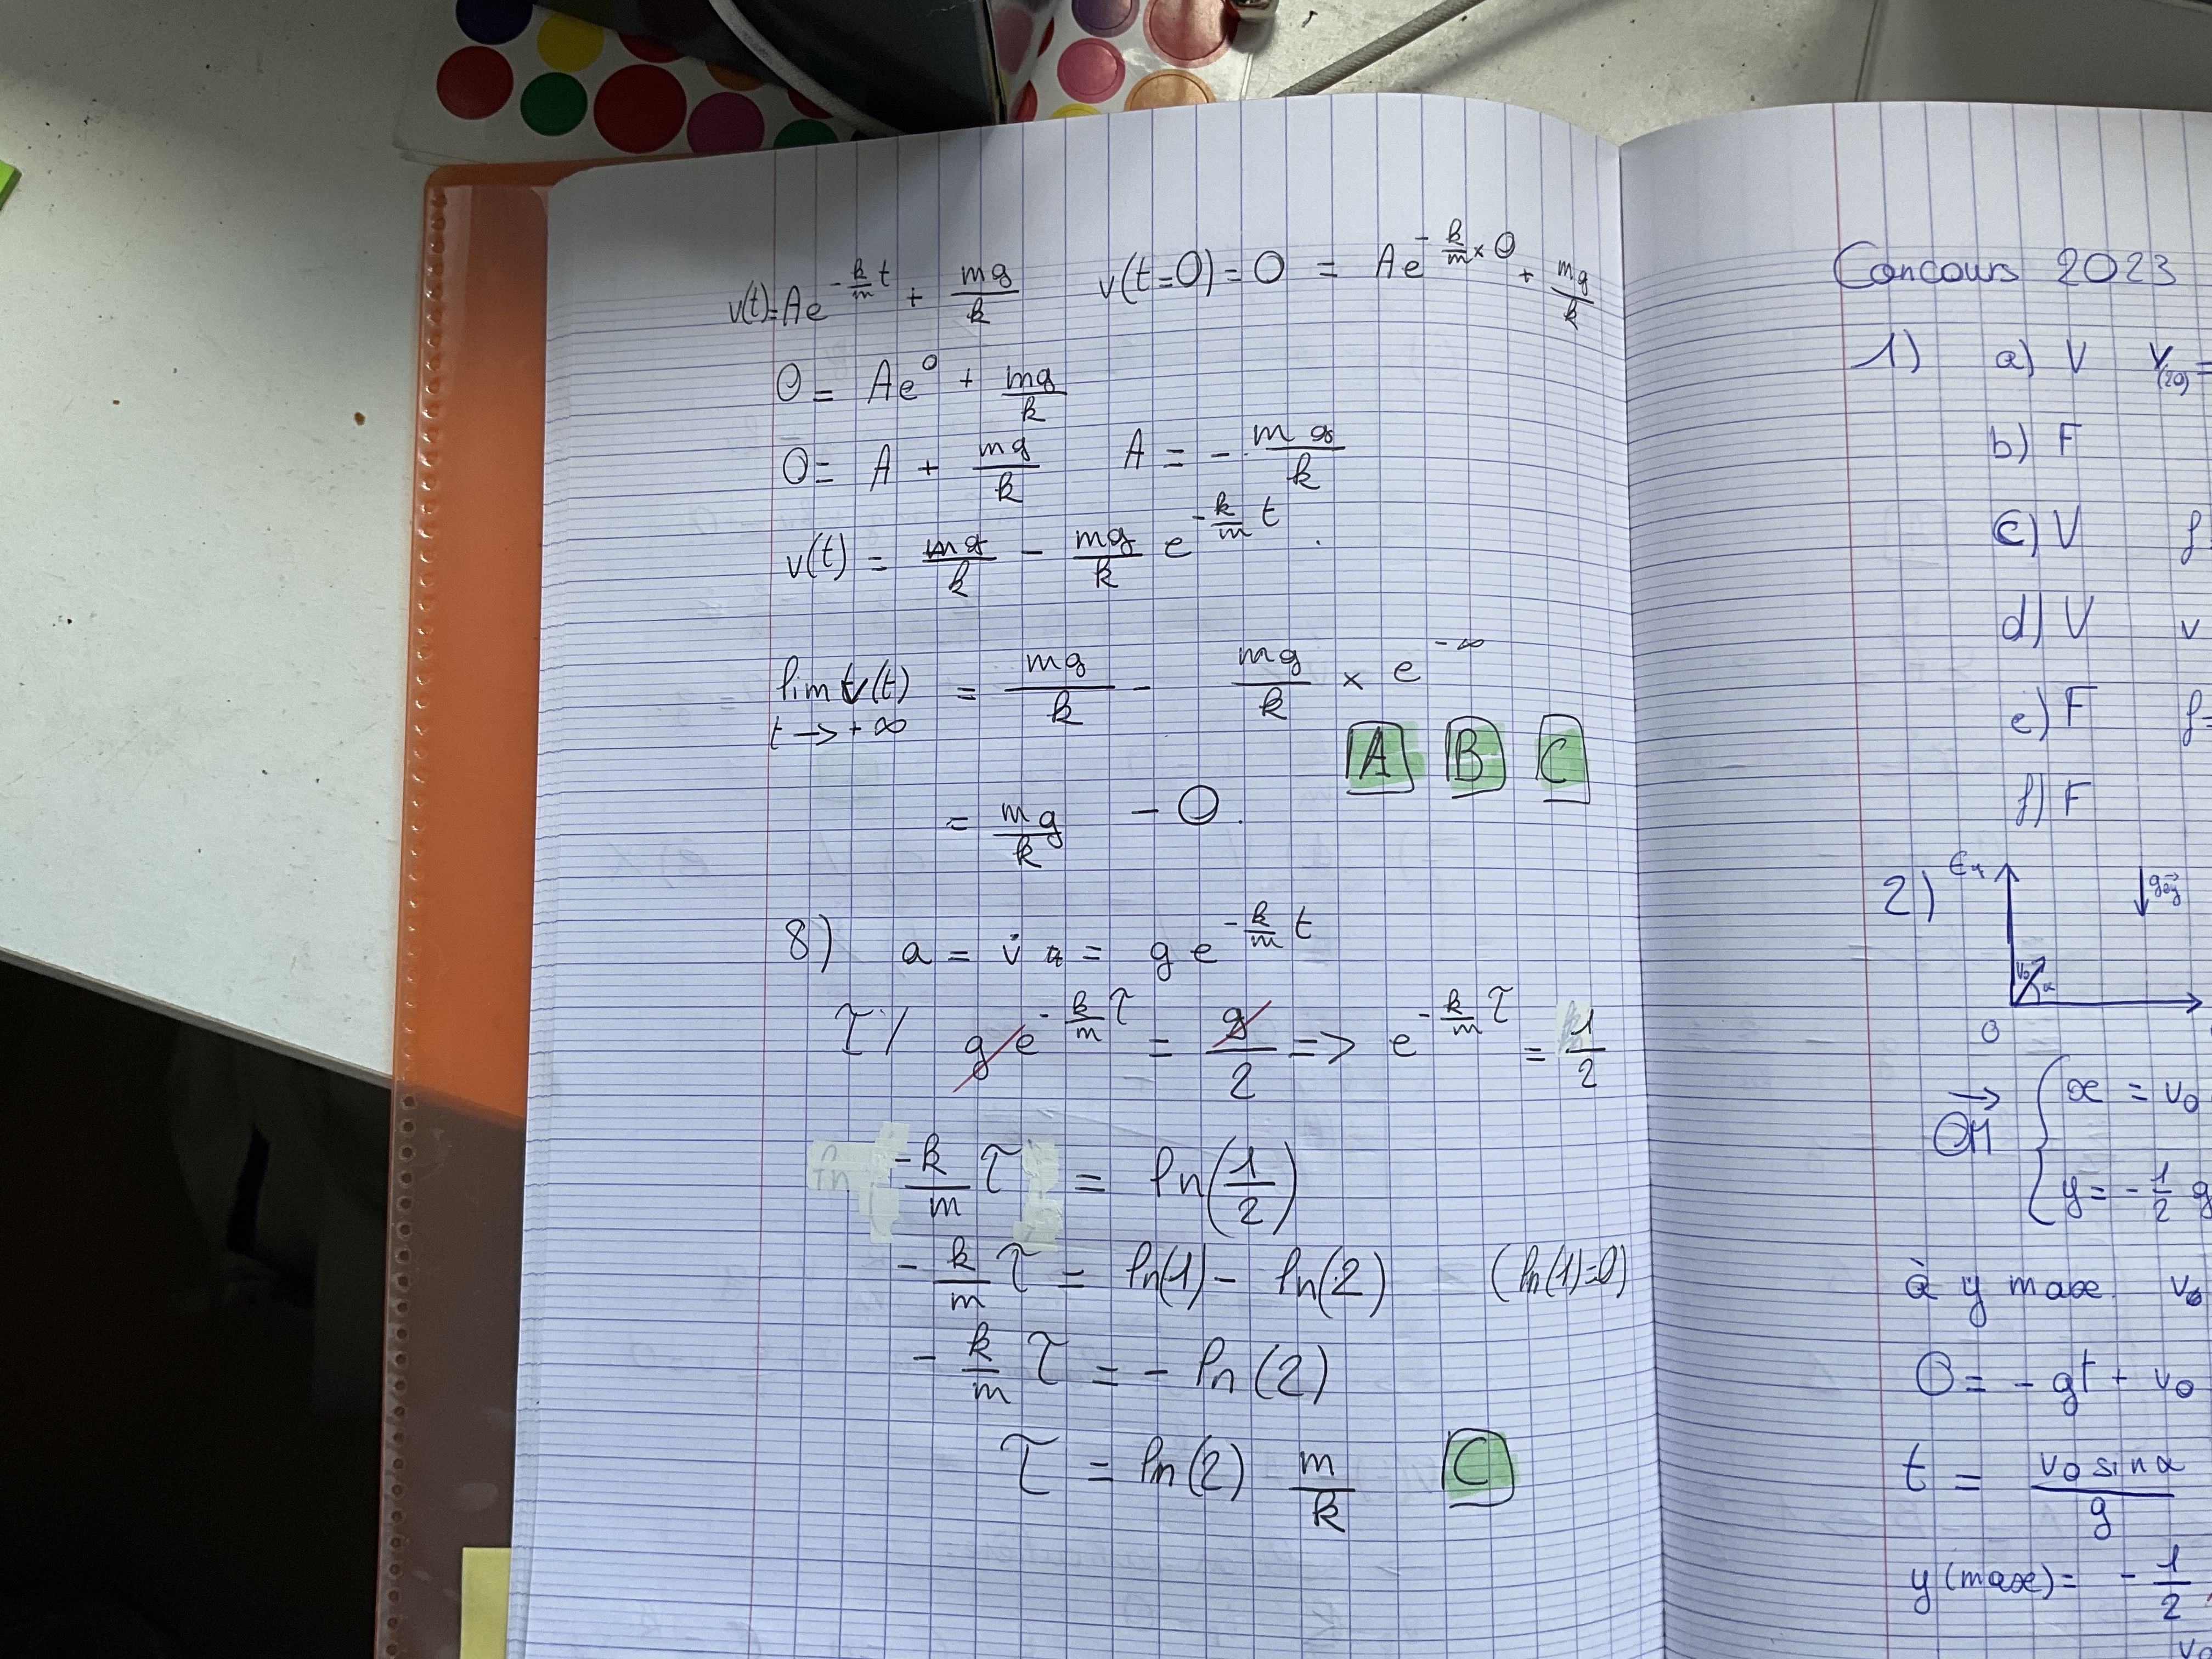 v(t)=Ae^{-\frac{k}{m}t} + \frac{mg}{k}   v(t=0)=0 = Ae^{-\frac{k}{m}×0} + \frac{mg}{k}
0 = Ae^0 + \frac{mg}{k}
0 = A + \frac{mg}{k}   A = - \frac{mg}{k}
v(t) = \frac{mg}{k} - \frac{mg}{k} e^{-\frac{k}{m}t}.
lim v(t) = \frac{mg}{k} - \frac{mg}{k} × e^{-∞}
t → +∞
A B C
= \frac{mg}{k} - 0.
8) a = v̇ = g e^{-\frac{k}{m}t}
τ/ g e^{-\frac{k}{m}τ} = \frac{g}{2} => e^{-\frac{k}{m}τ} = \frac{1}{2}
-\frac{k}{m} τ = ln(\frac{1}{2})
-\frac{k}{m} τ = ln(1) - ln(2)   (ln(1)=0)
-\frac{k}{m} τ = - ln(2)
τ = ln(2) \frac{m}{k}   C
Concours 2023
1) a) V   V_{(20)} =
b) F
c) V   f
d) V   v
e) F   f=
f) F
2)
v0 α
0
\vec{OM} { x = v0
y = -\frac{1}{2} g
à y max   v0
0 = - gt + v0
t = \frac{v0 sin α}{g}
y(max) = - \frac{1}{2}
v0